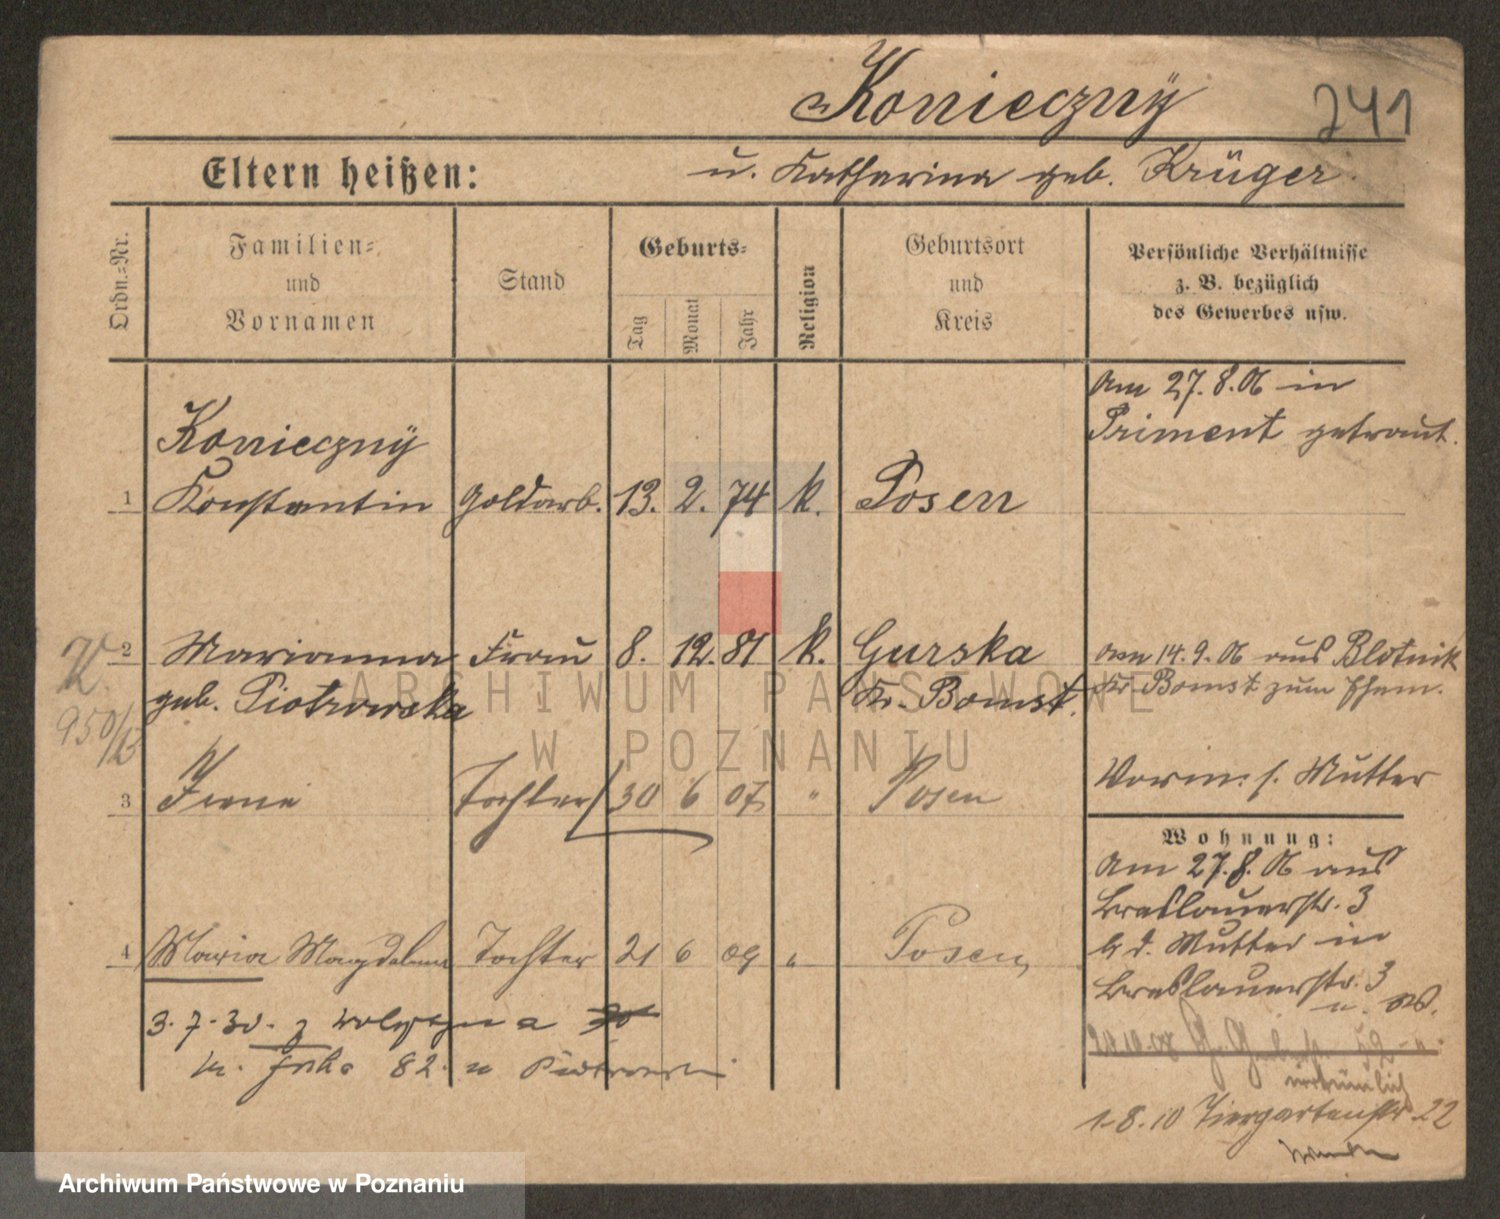 Konieczny
241
Eltern heißen:
u. Katharina geb. Krüger.
Ordn.=Nr.
Familien=
und
Vornamen
Stand
Geburts=
Tag
Monat
Jahr
Religion
Geburtsort
und
Kreis
Persönliche Verhältnisse
z. B. bezüglich
des Gewerbes usw.
Am 27.8.06 in
Priment getraut.
Konieczny
1 Konstantin Goldarb. 13. 2. 74 k. Posen
2 Marianna Frau 8. 12. 81 k. Gurska am 14.9.06 aus Blotnik
geb. Piotrowska Kr. Bomst. Kr. Bomst zum Ehem.
K.
950/13
Vorm. s. Mutter
3 Irene Tochter 30 6 07 " Posen
Wohnung:
Am 27.8.06 aus
Breslauerstr. 3
b d. Mutter in
Breslauerstr. 3
4 Maria Magdalena Tochter 21 6 09 " Posen
3.7.30. z
82
1.8.10 Tiergartenstr. 22
ARCHIWUM PAŃSTWOWE
W POZNANIU
Archiwum Państwowe w Poznaniu